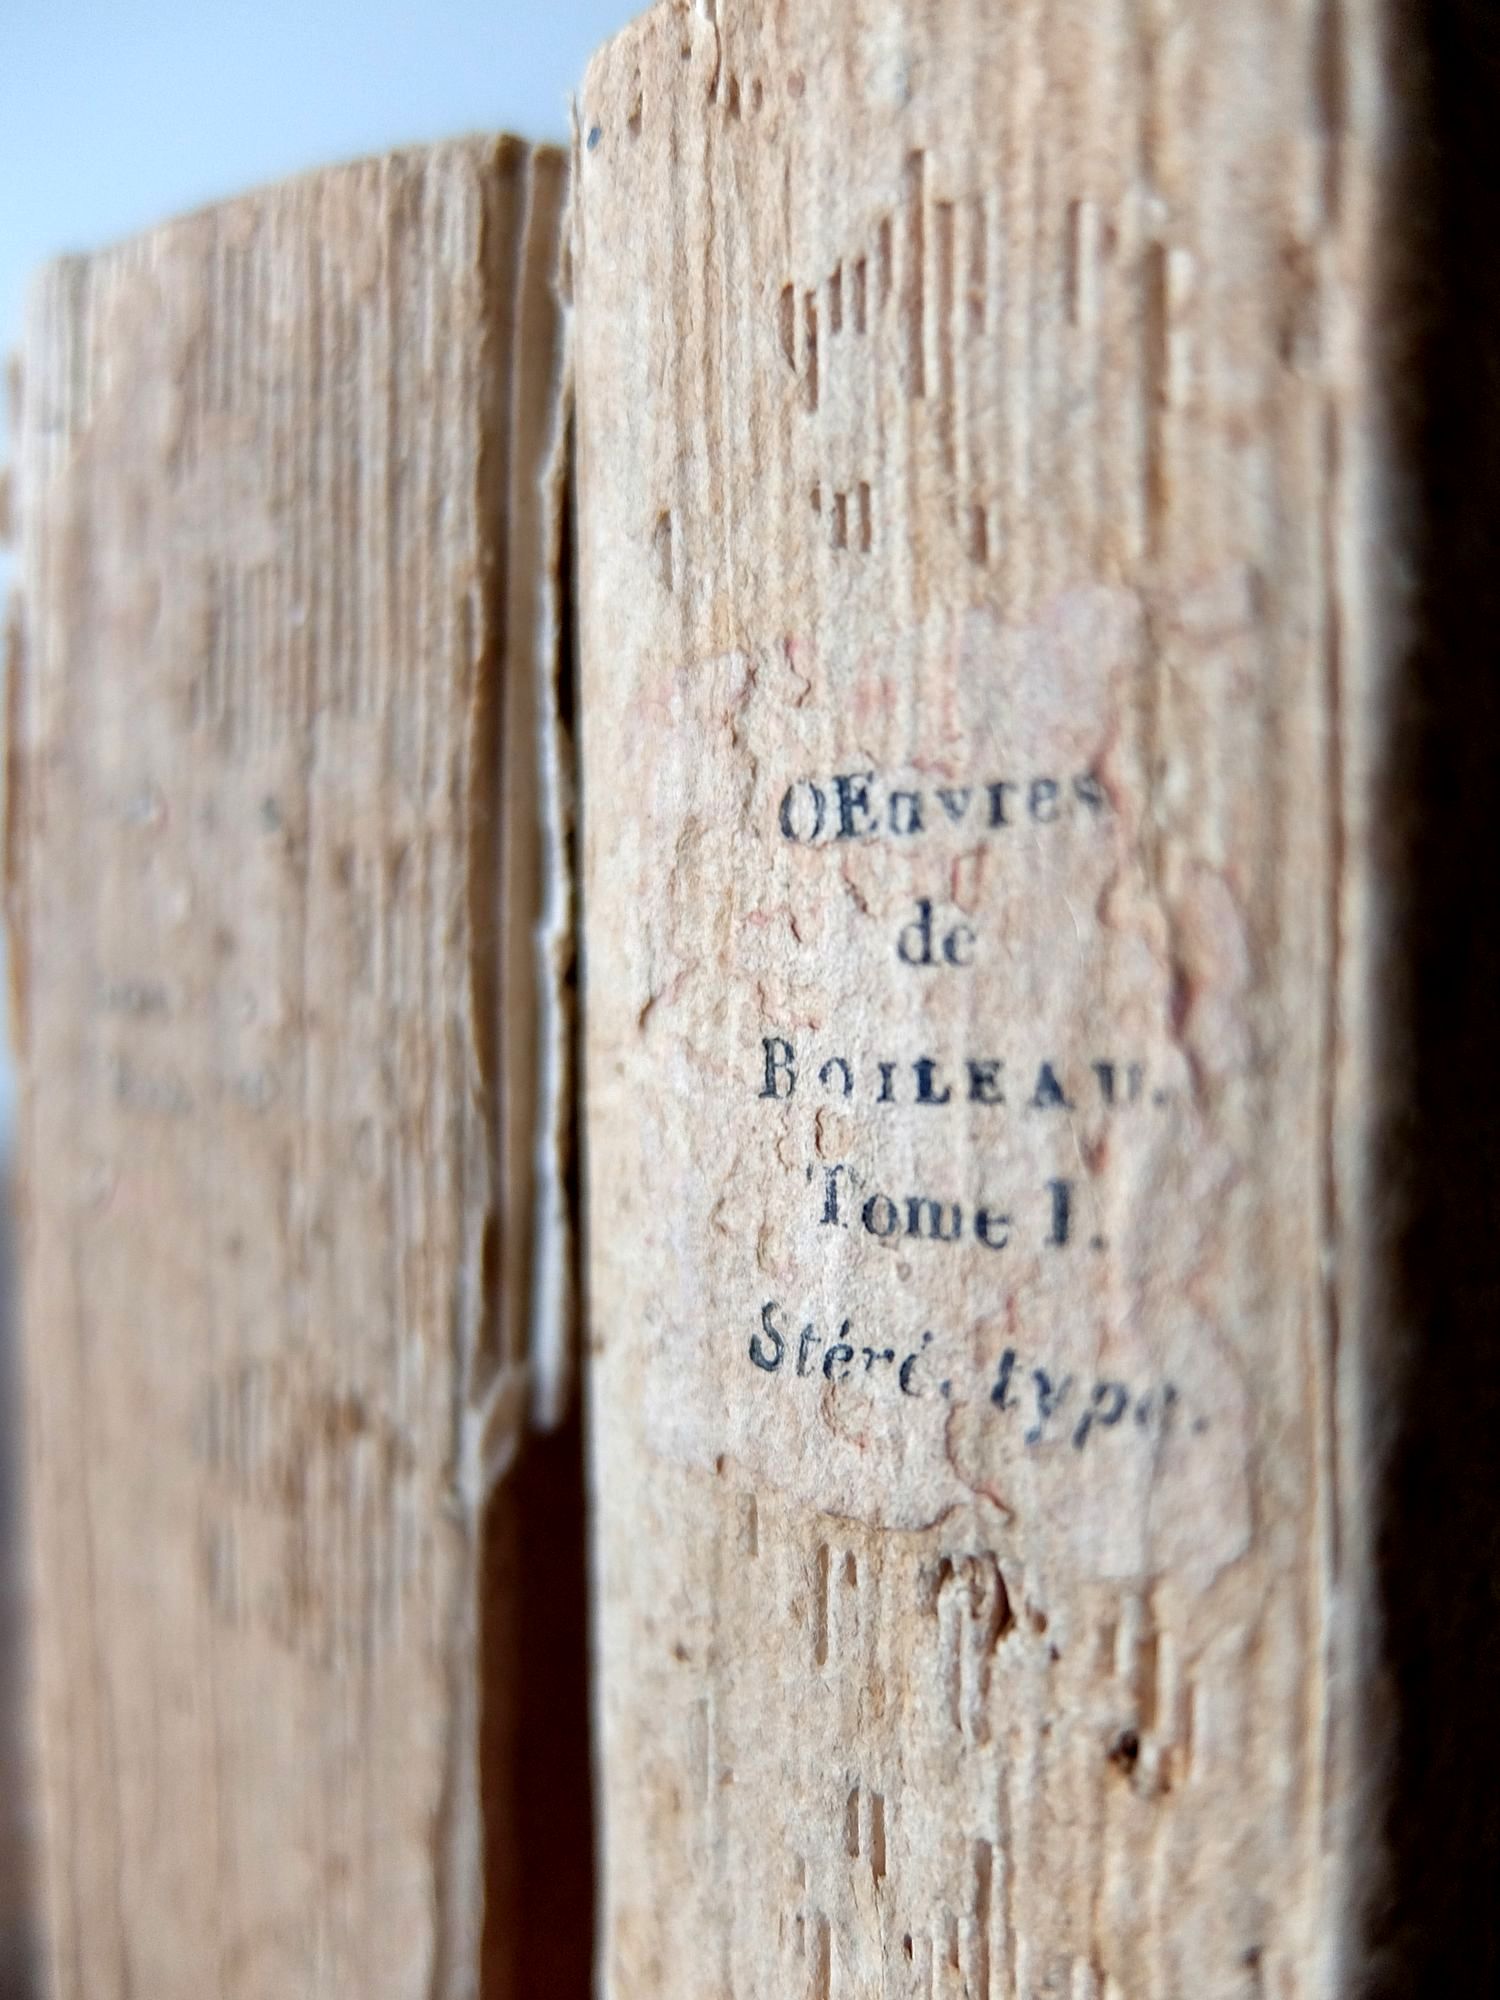 OEuvres
de
BOILEAU.
Tome I.
Stéré. type.